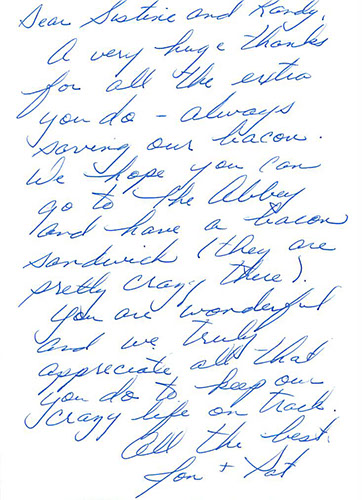 Dear Sistine and Randy,
A very huge thanks
for all the extra
you do - always
saving our bacon.
We hope you can
go to the Abbey
and have a bacon
sandwich (they are
pretty crazy there).
You are wonderful
and we truly
appreciate all that
you do to keep our
crazy life on track.
All the best
Jon +